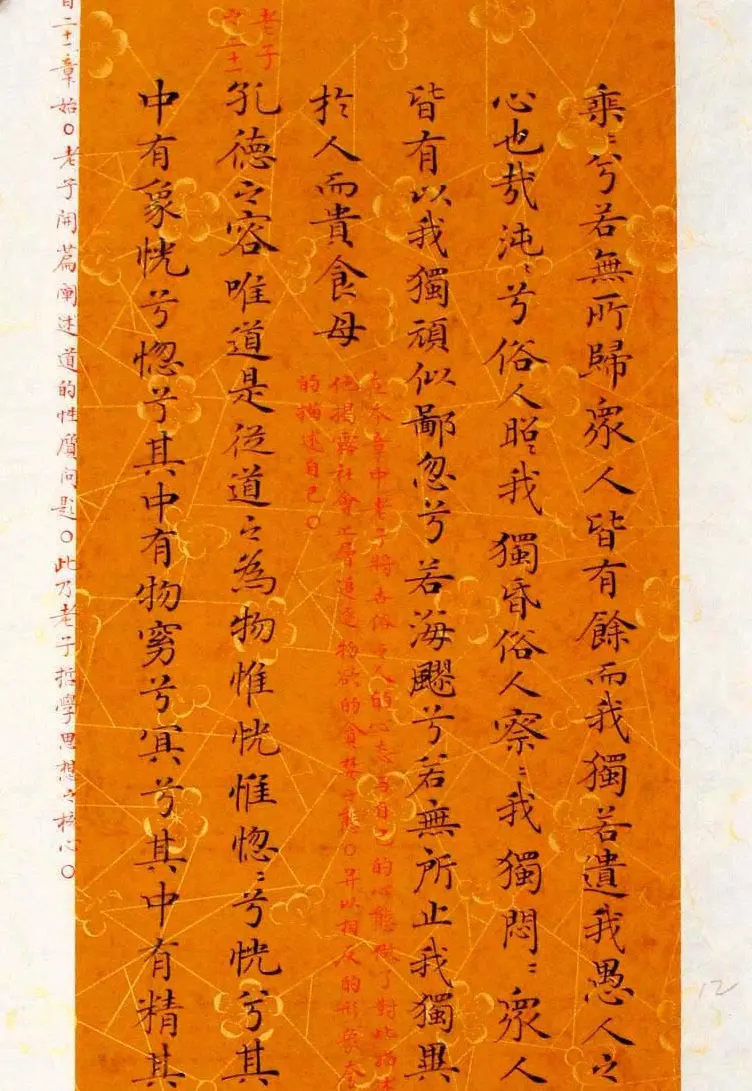 乘〻兮若無所歸衆人皆有餘而我獨若遺我愚人之
心也哉沌〻兮俗人昭我獨昏俗人察〻我獨悶〻衆人
皆有以我獨頑似鄙忽兮若海飂兮若無所止我獨異
於人而貴食母
在本章中老子將世俗之人的心态与自己的心態做了對比描述
他揭露社會上層追逐物欲的貪婪之態〇并以相反的形象夸
的描述自己〇
老子
之二十一
孔德之容唯道是從道之為物惟恍惟惚〻兮恍兮其
中有象恍兮惚兮其中有物窈兮冥兮其中有精其
自二十一章始〇老子開篇阐述道的性質问题〇此乃老子哲學思想之核心〇
12